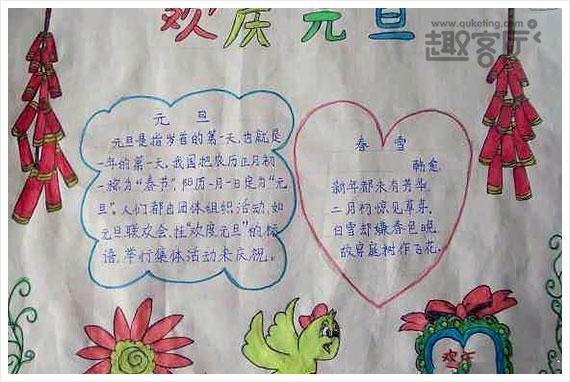 www.quketing.com
趣客厅
欢庆元旦
元旦
元旦是指岁首的第一天,也就是
一年的第一天。我国把农历正月初
一称为“春节”,阳历一月一日定为“元
旦”。人们都由团体组织活动,如
元旦联欢会,挂“欢度元旦”的标
语,举行集体活动来庆祝。
春雪
韩愈
新年都未有芳华,
二月初惊见草芽。
白雪却嫌春色晚,
故穿庭树作飞花。
欢庆